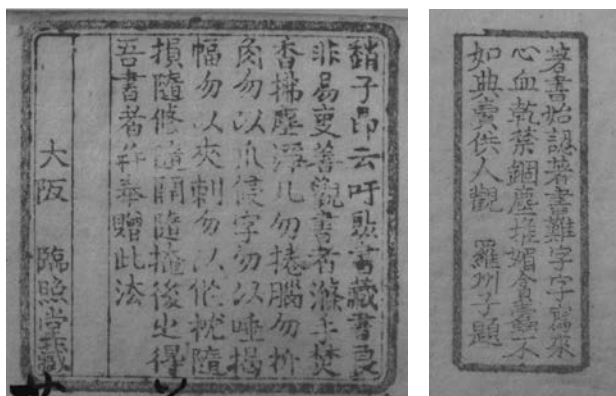 趙子昂云吁聚書藏書良
非易叓善觀書者滌手焚
香拂塵淨几勿捲腦勿折
角勿以爪侵字勿以唾揭
幅勿以夾刺勿以作枕隨
損隨修隨開隨掩後之得
吾書者并奉贈此法
大阪 臨照堂藏
著書始認著書難字字寫來
心血乾禁錮塵堆媚食蠹不
如典賣供人觀 羅州子題